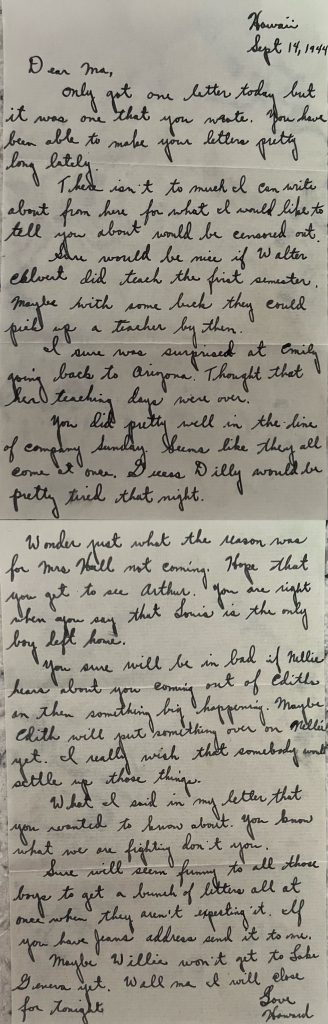 Hawaii
Sept 14, 1944
Dear Ma,
Only got one letter today but
it was one that you wrote. You have
been able to make your letters pretty
long lately.
There isn't to much I can write
about from here for what I would like to
tell you about would be censored out.
Sure would be nice if Walter
Calvert did teach the first semester.
Maybe with some luck they could
pick up a teacher by then.
I sure was surprised at Emily
going back to Arizona. Thought that
her teaching days were over.
You did pretty well in the line
of company Sunday. Seems like they all
come at once. Guess Dilly would be
pretty tired that night.
Wonder just what the reason was
for Mrs Hall not coming. Hope that
you get to see Arthur. You are right
when you say that Louis is the only
boy left home.
You sure will be in bad if Nellie
hears about you coming out of Ediths
an then something big happening. Maybe
Edith will put something over on Nellie
yet. I really wish that somebody would
settle up those things.
What I said in my letter that
you wanted to know about. You know
what we are fighting don't you.
Sure will seem funny to all those
boys to get a bunch of letters all at
once when they aren't expecting it. If
you have Jeans address send it to me.
Maybe Willie won't get to Lake
Geneva yet. Wall ma I will close
for tonight
Love
Howard